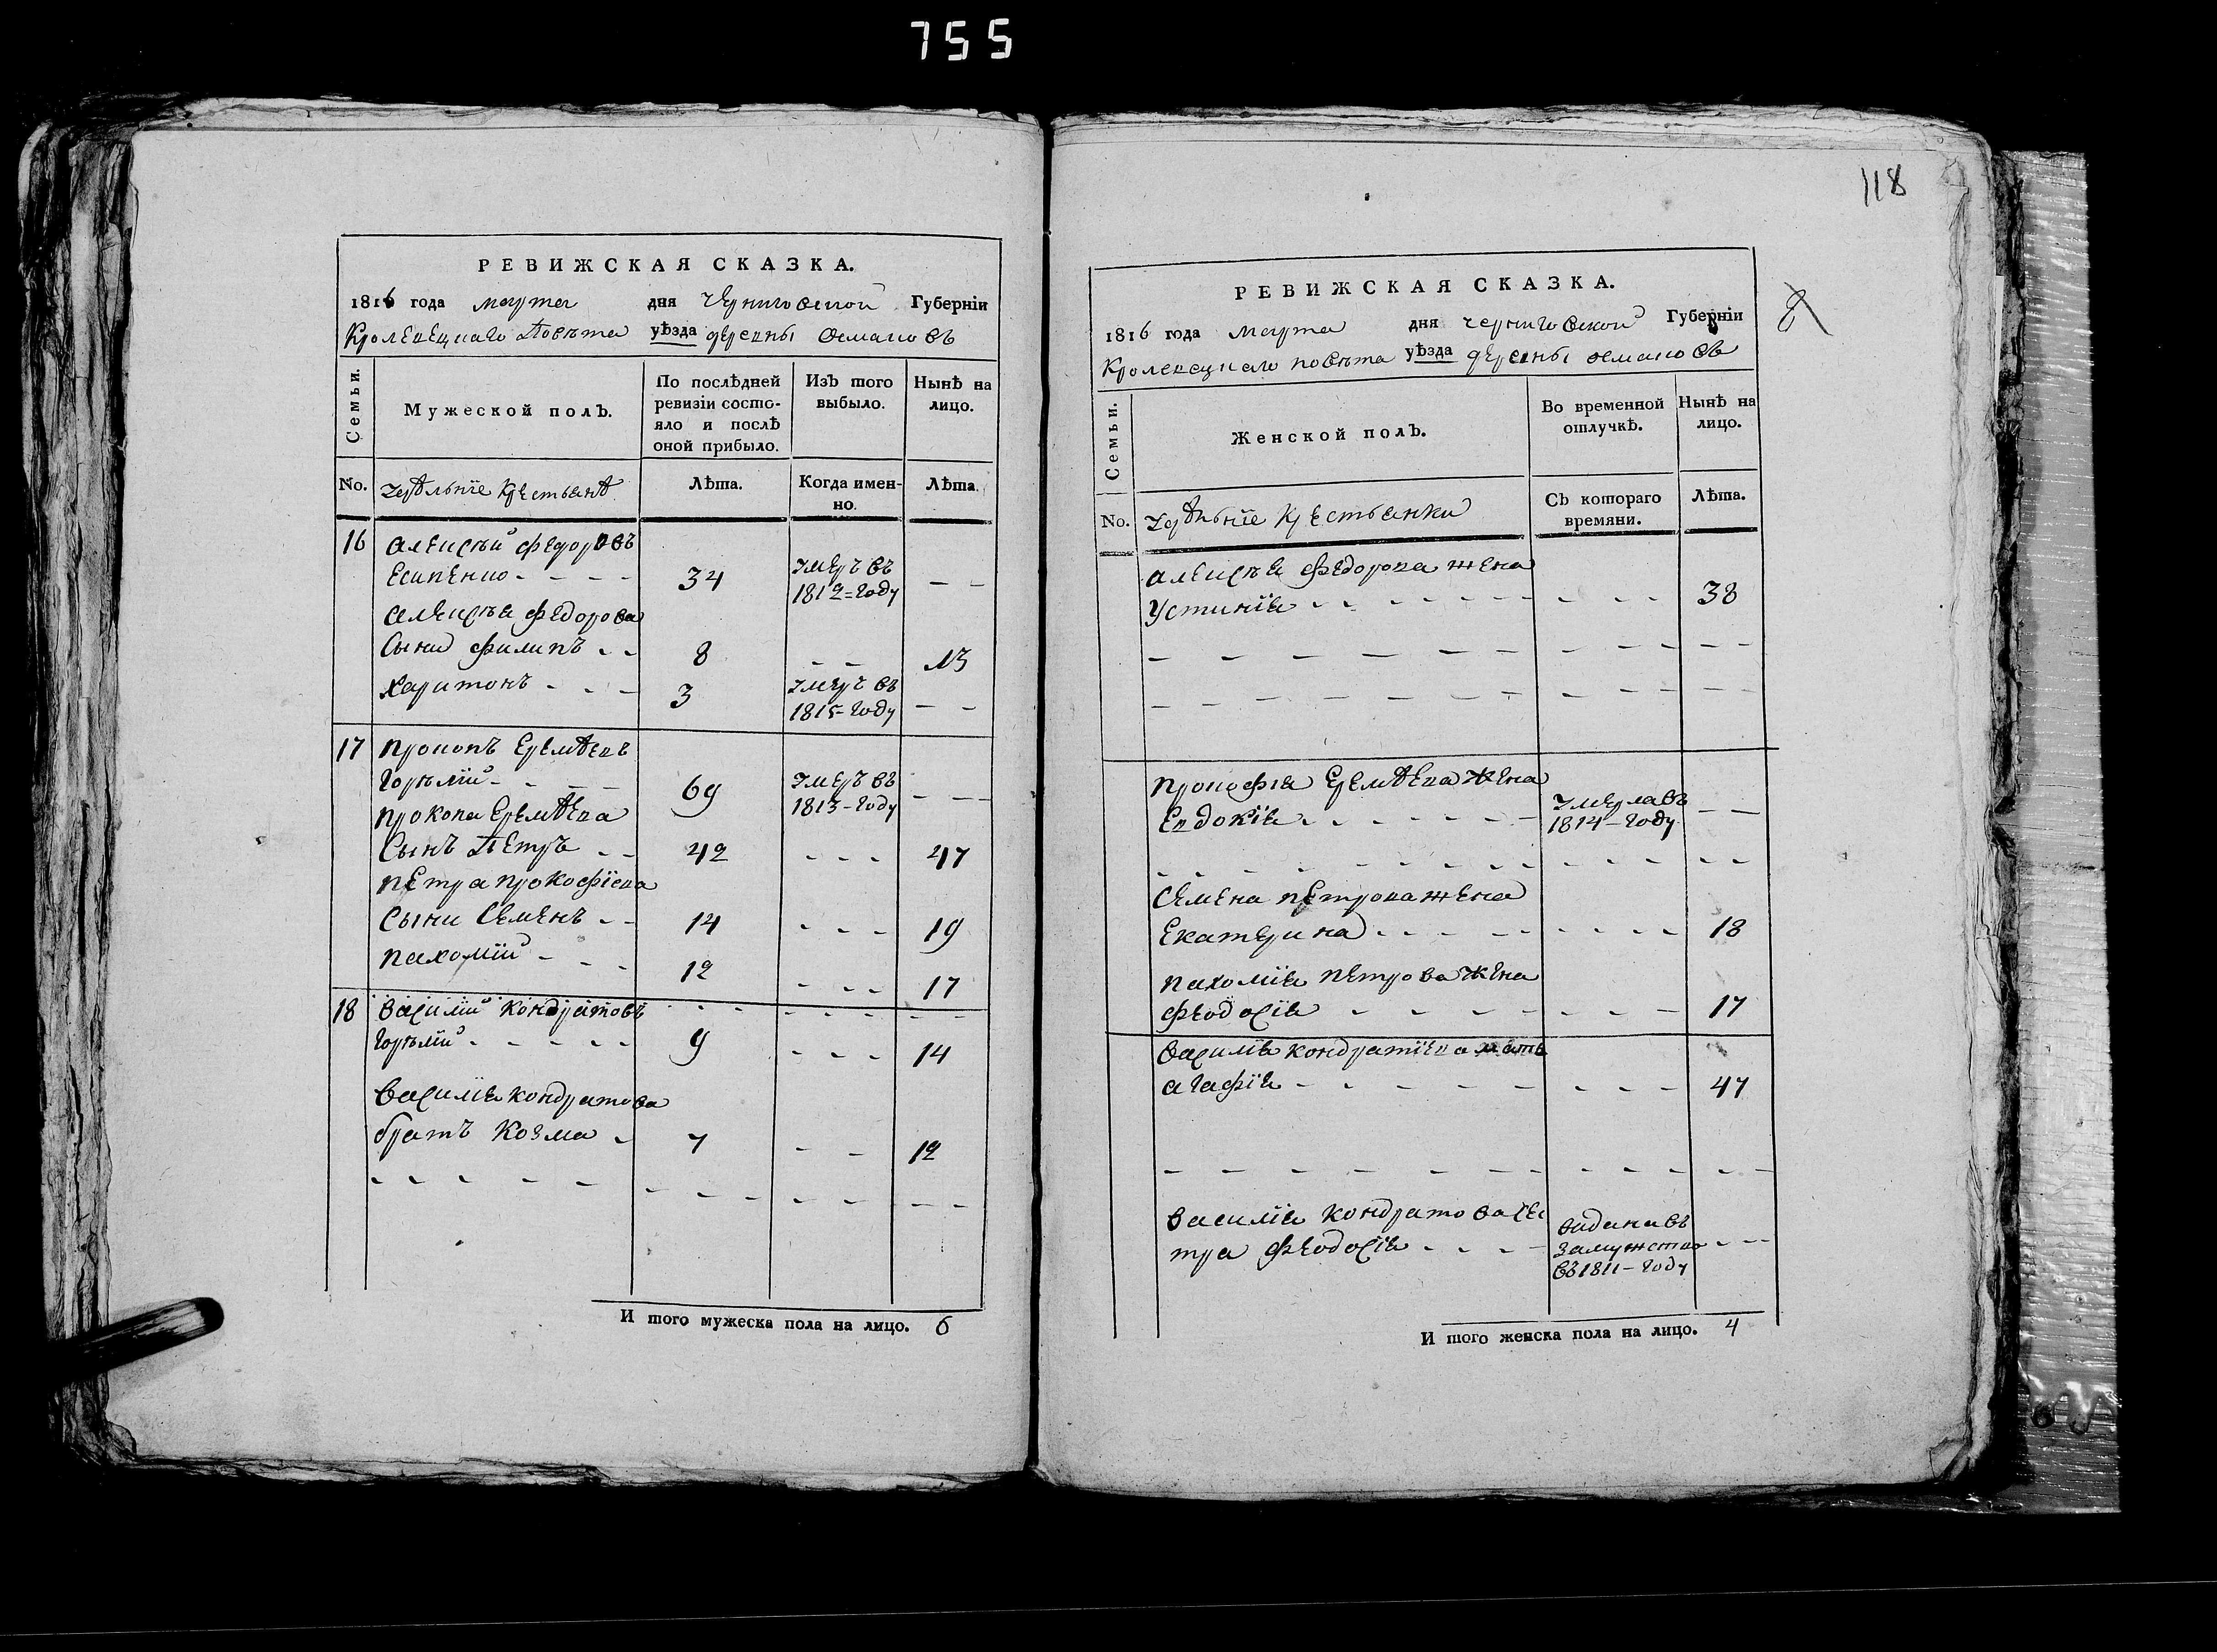 755
118
РЕВИЖСКАЯ СКАЗКА.
1816 года марта дня Черниговской Губернїи
Кролевецкаго Повѣта уѣзда деревны Османовъ
Семьи.
Мужеской полъ.
По послѣдней ревизїи состо-
яло и послѣ оной прибыло.
Изъ того выбыло.
Нынѣ на лицо.
No. Удѣльнїе Крестьянѣ
Лѣта.
Когда имен-
но.
Лѣта.
16 Алексѣй Федоровъ
Есипенко - - - - 34 умеръ въ 1812=году - -
Алексѣя Федорова
Сыни Филипъ - - 8 - - 13
Харитонъ - - - 3 умеръ въ 1815-году - -
17 Прокопъ Еремѣевъ
Горѣлїй - - - - 69 умеръ въ 1813-году - - -
Прокопа Еремѣева
Сынъ Петръ - - 42 - - - 47
Петра Прокофїева
Сыни Семенъ - - 14 - - - 19
Пахомїй - - - 12 - - - 17
18 Василїй Кондратовъ
Горѣлїй - - - - - 9 - - - 14
Василїя Кондратова
братъ Козма - 7 - - 12
И того мужеска пола на лицо. 6
РЕВИЖСКАЯ СКАЗКА.
1816 года марта дня Черниговской Губернїи
8
Кролевецкаго повѣта уѣзда деревны Османовъ
Семьи.
Женской полъ.
Во временной отлучкѣ.
Нынѣ на лицо.
No. Удѣльнїе Крестьянки
Съ котораго времяни.
Лѣта.
Алексѣя Федорова жена
Устинїя - - - - - - - - - - 38
Прокофїя Еремѣева жена
Евдокїя - - - - - - умерла въ 1814-году - -
Семена Петрова жена
Екатерина - - - - - - - - - 18
Пахомїя Петрова жена
Феодосїя - - - - - - - 17
Василїя Кондратїева мать
Агафїя - - - - - - - - 47
Василїя Кондратова сес
тра Феодосїя - - - - видана въ
замужство - - -
въ 1811-году
И того женска пола на лицо. 4